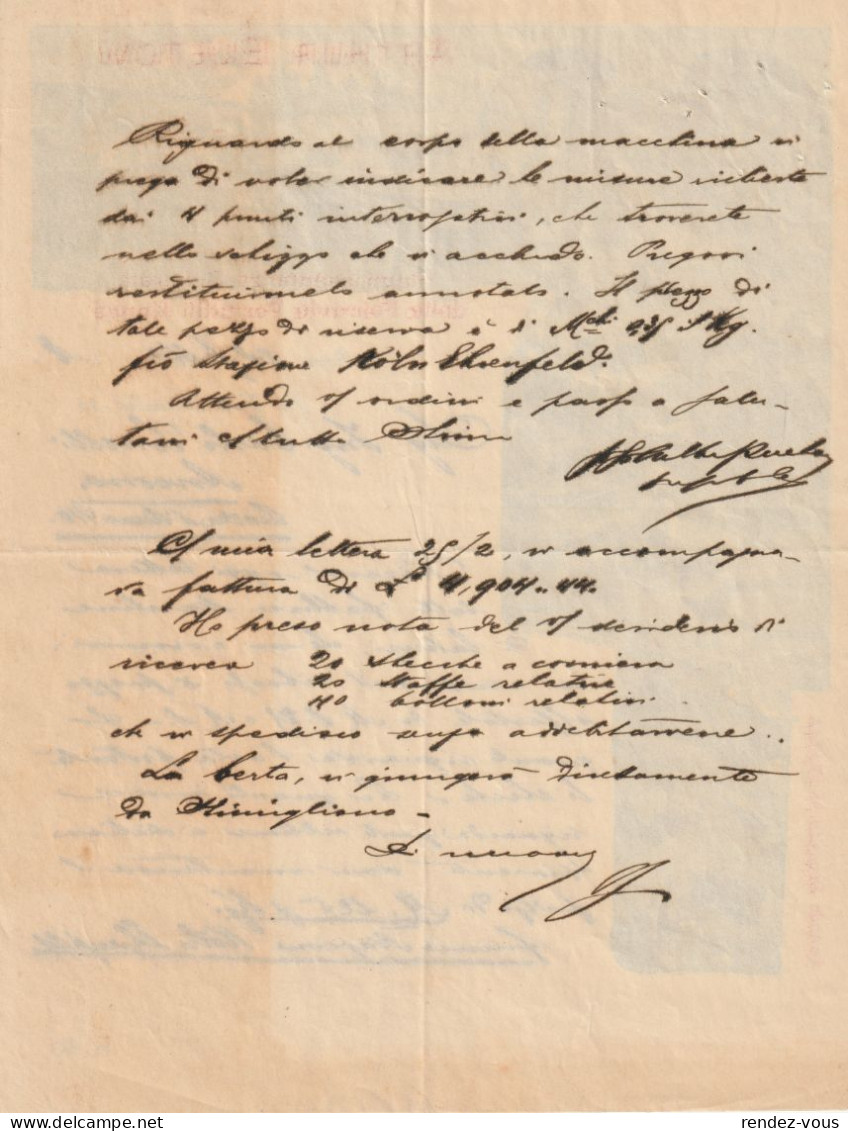 Riguardo al corpo della macchina vi
prego di voler indicare le misure richieste
dai 4 punti interrogativi, che troverete
nello schizzo che vi accludo. Pregovi
restituirmelo annotato. Il prezzo di
tale pezzo di riserva è di Mchi
fco stazione Köln Ehrenfeld.
Attendo v/ ordini e passo a salu-
tarvi con tutta stima
C/ mia lettera 25/2, vi accompagna-
va fattura di L. 4,904.44.
Ho preso nota del v/ desiderio di
ricevere 20 stecche a corniera
20 staffe relative
40 bolloni relativi
che vi spedisco
La berta, vi giungerà direttamente
da
rendez-vous